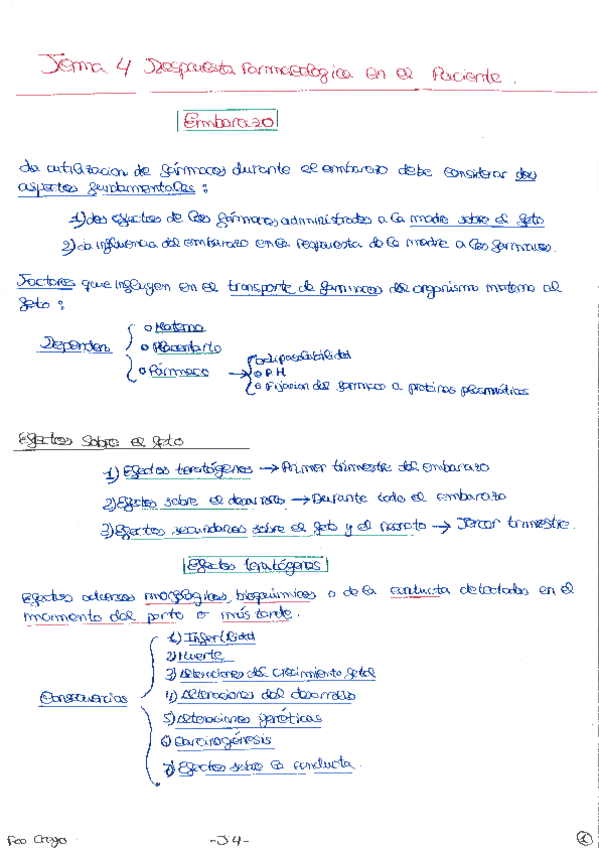 Tema 4 Respuesta Farmacologica en el Paciente.
Embarazo
La utilizacion de fármacos durante el embarazo debe considerar dos
aspectos fundamentales:
1) Los efectos de los fármacos administrados a la madre sobre el feto
2) La influencia del embarazo en la respuesta de la madre a los fármacos.
Factores que influyen en el transporte de fármacos del organismo materno al
feto:
Dependen
Materno
Placentario
Fármaco
Liposolubilidad
PH
Fijacion del farmaco a proteinas plasmáticas
Efectos sobre el feto
1) Efectos teratógenos → Primer trimestre del embarazo
2) Efectos sobre el desarrollo → Durante todo el embarazo
3) Efectos secundarios sobre el feto y el neonato → Tercer trimestre.
Efectos teratógenos
Efectos adversos morfologicos, bioquimicos o de la conducta detectados en el
momento del parto o más tarde.
Consecuencias
1) Infertilidad
2) Muerte
3) Alteraciones del crecimiento fetal
4) Alteraciones del desarrollo
5) Alteraciones genéticas
6) Carcinogénesis
7) Efectos sobre la conducta.
Fco Crego
-J4-
1